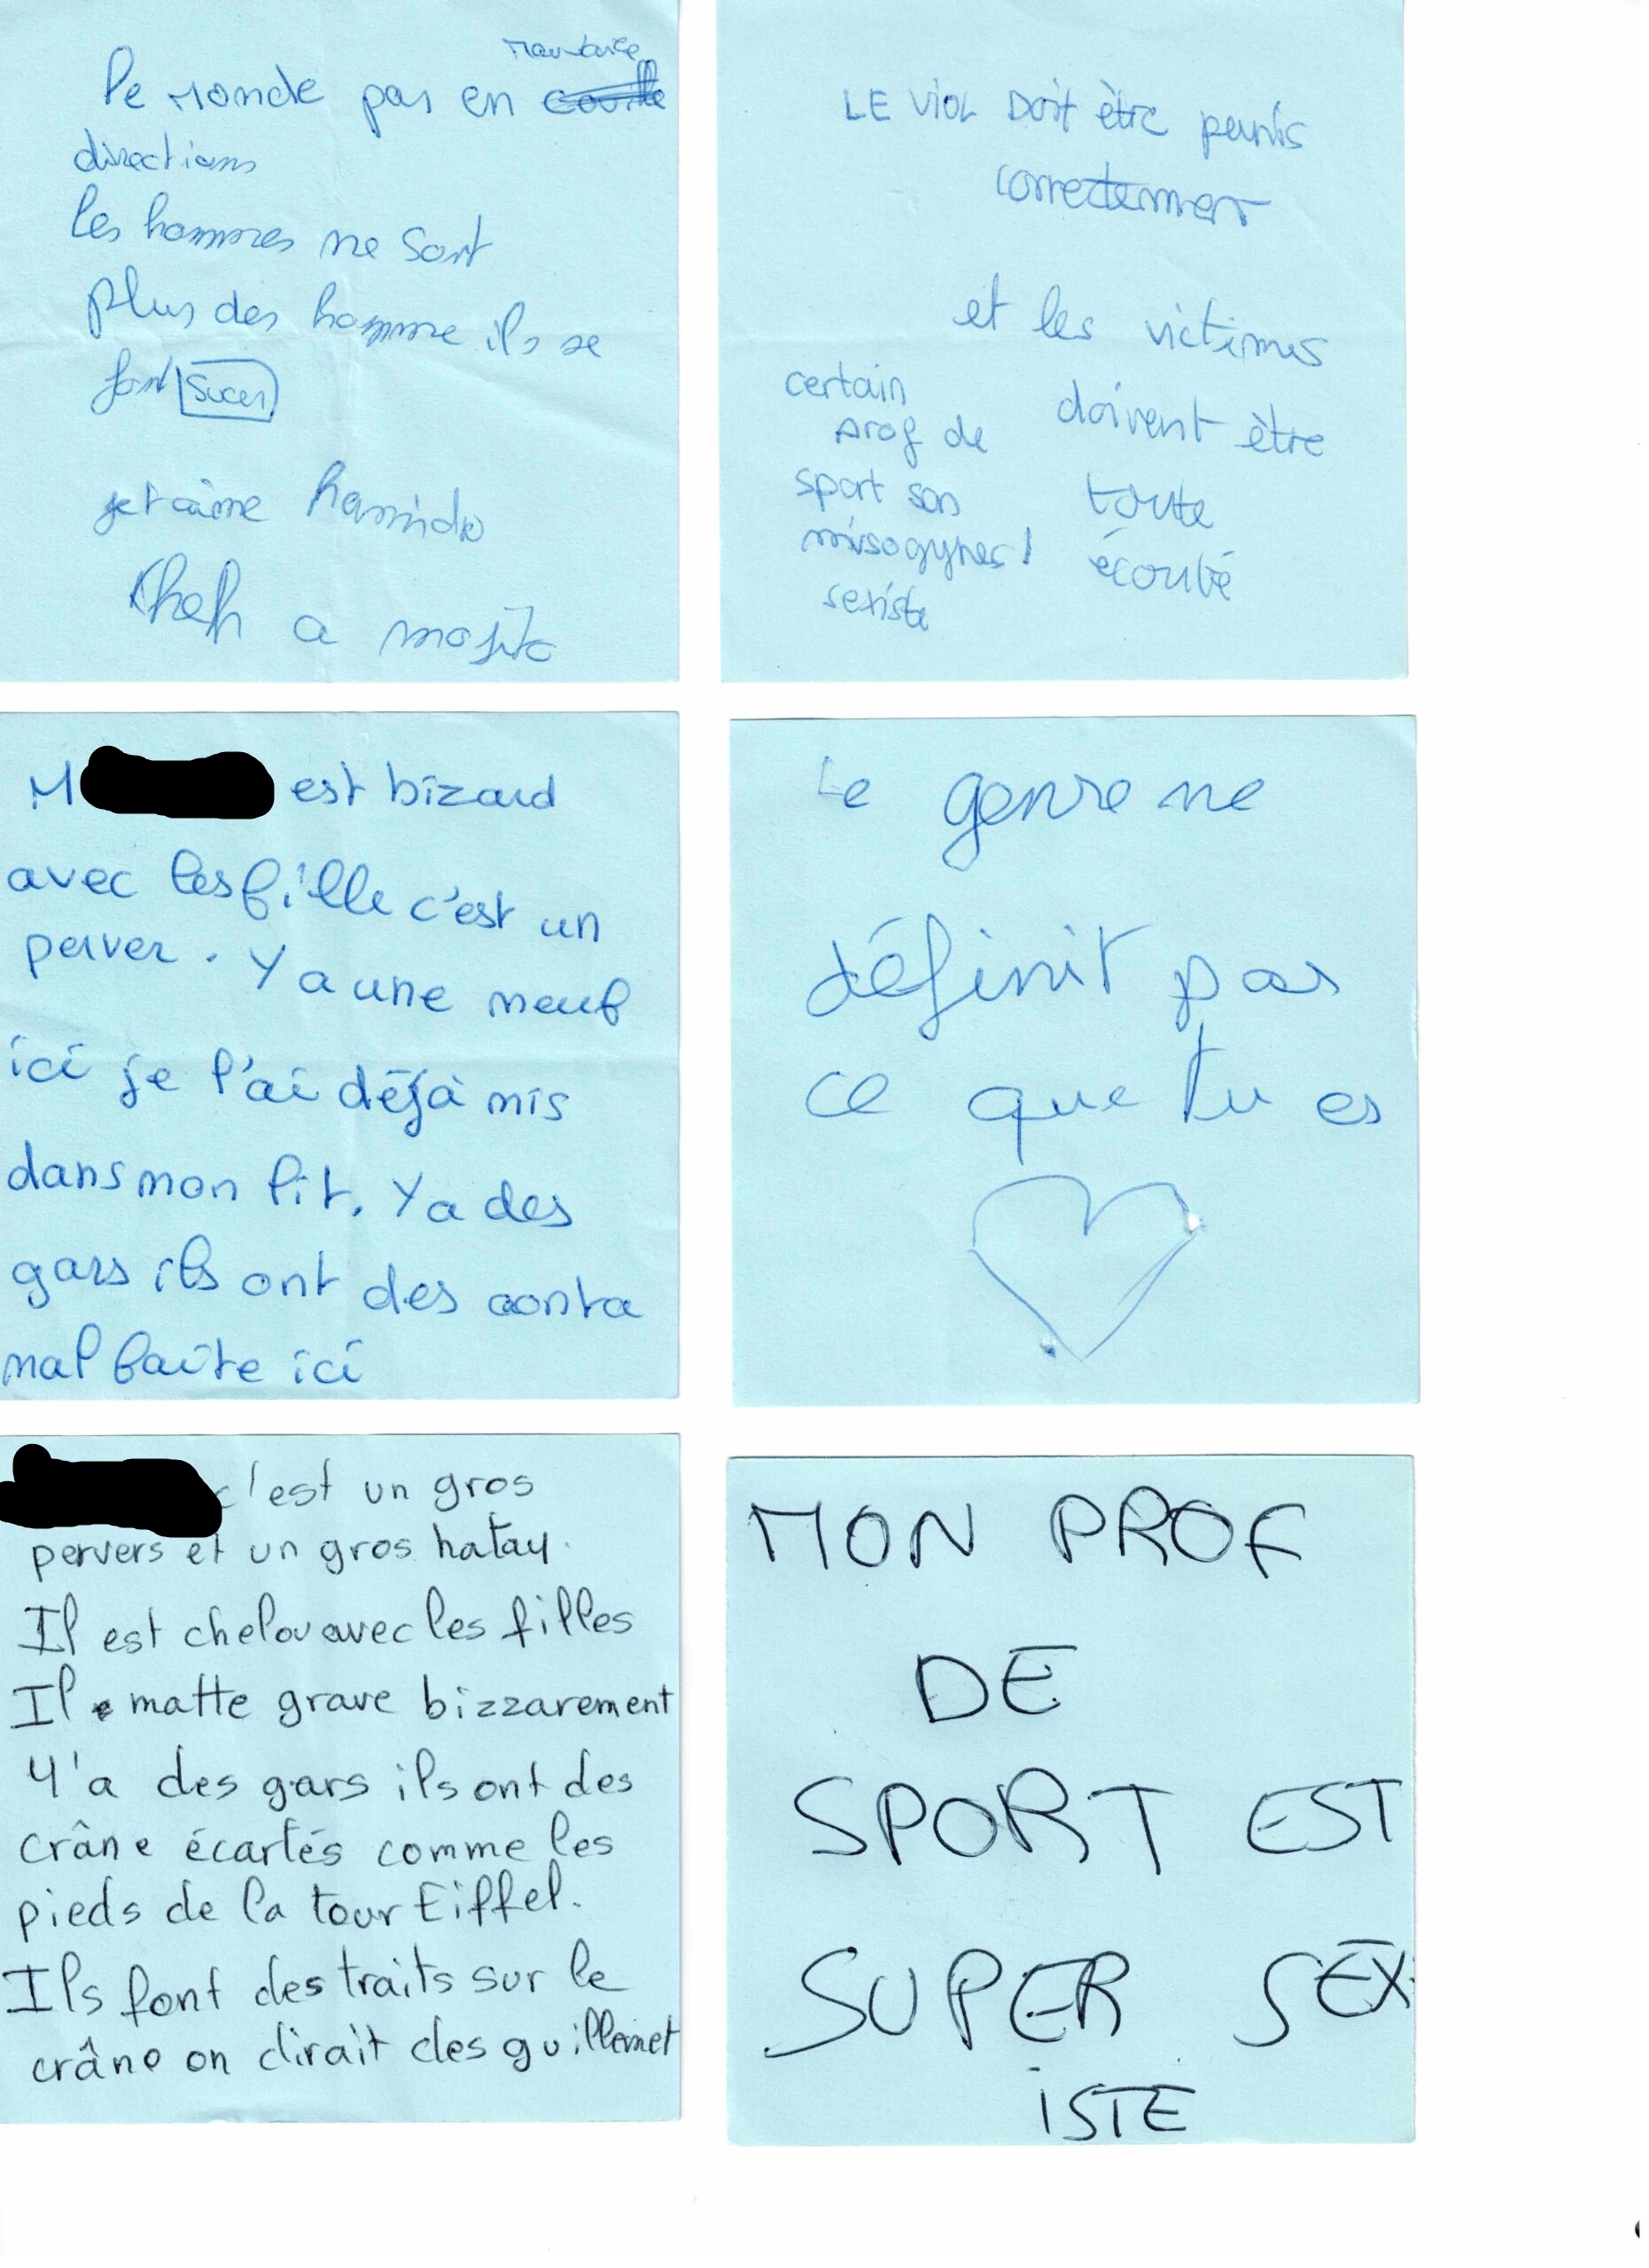 le monde par en mauvaise
directions
les hommes ne sont
plus des homme ils se
font sucer
je t'aime
Cheh a
LE VIOL Doit être punis
correctement
et les victimes
doivent être
toute
écouté
certain
prof de
sport son
misogynes !
sexiste
M est bizard
avec les fille c'est un
perver. Y a une meuf
ici je l'ai déjà mis
dans mon lit. Y a des
gars ils ont des conta
mal faite ici
Le genre ne
définit pas
ce que tu es
c'est un gros
pervers et un gros hatay.
Il est chelou avec les filles
Il matte grave bizzarement
Y'a des gars ils ont des
crâne écartés comme les
pieds de la tour Eiffel.
Ils font des traits sur le
crâne on dirait des guillemet
MON PROF
DE
SPORT EST
SUPER SEX
ISTE